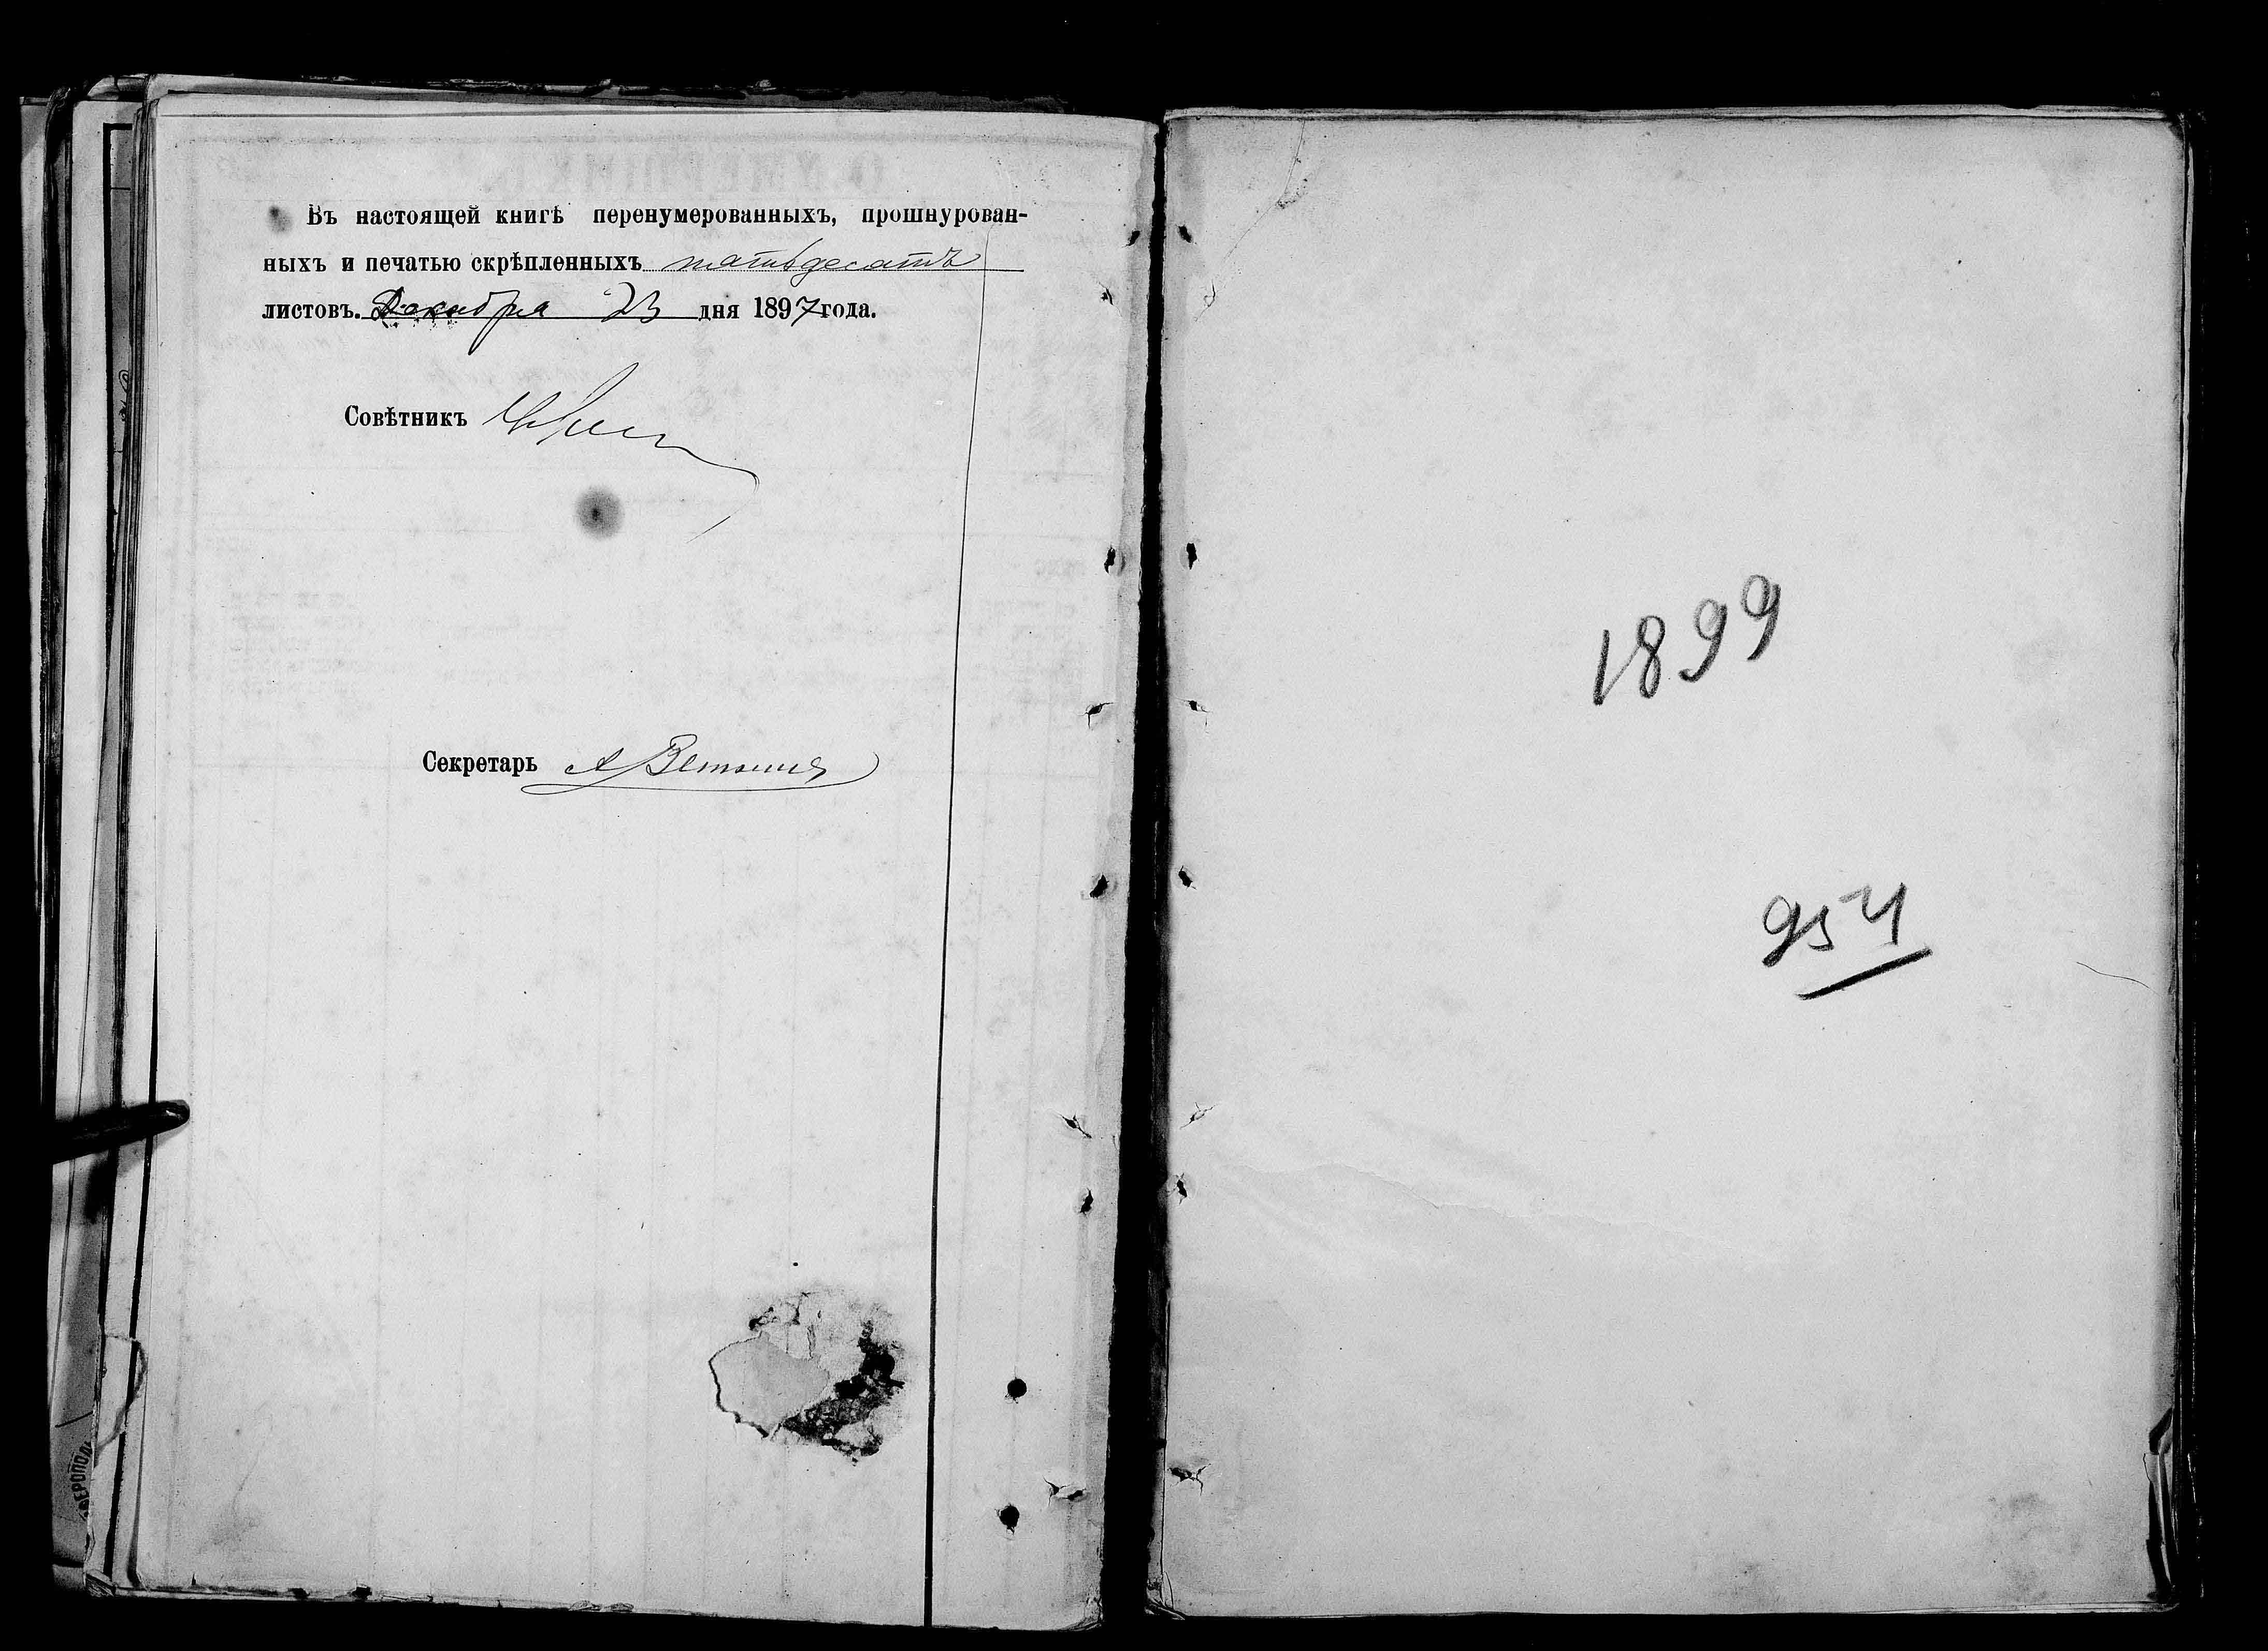 Въ настоящей книгѣ перенумерованныхъ, прошнурован-
ныхъ и печатью скрѣпленныхъ пятьдесятъ
листовъ. Декабря 23 дня 1897 года.
Совѣтникъ
Секретарь А
1899
954